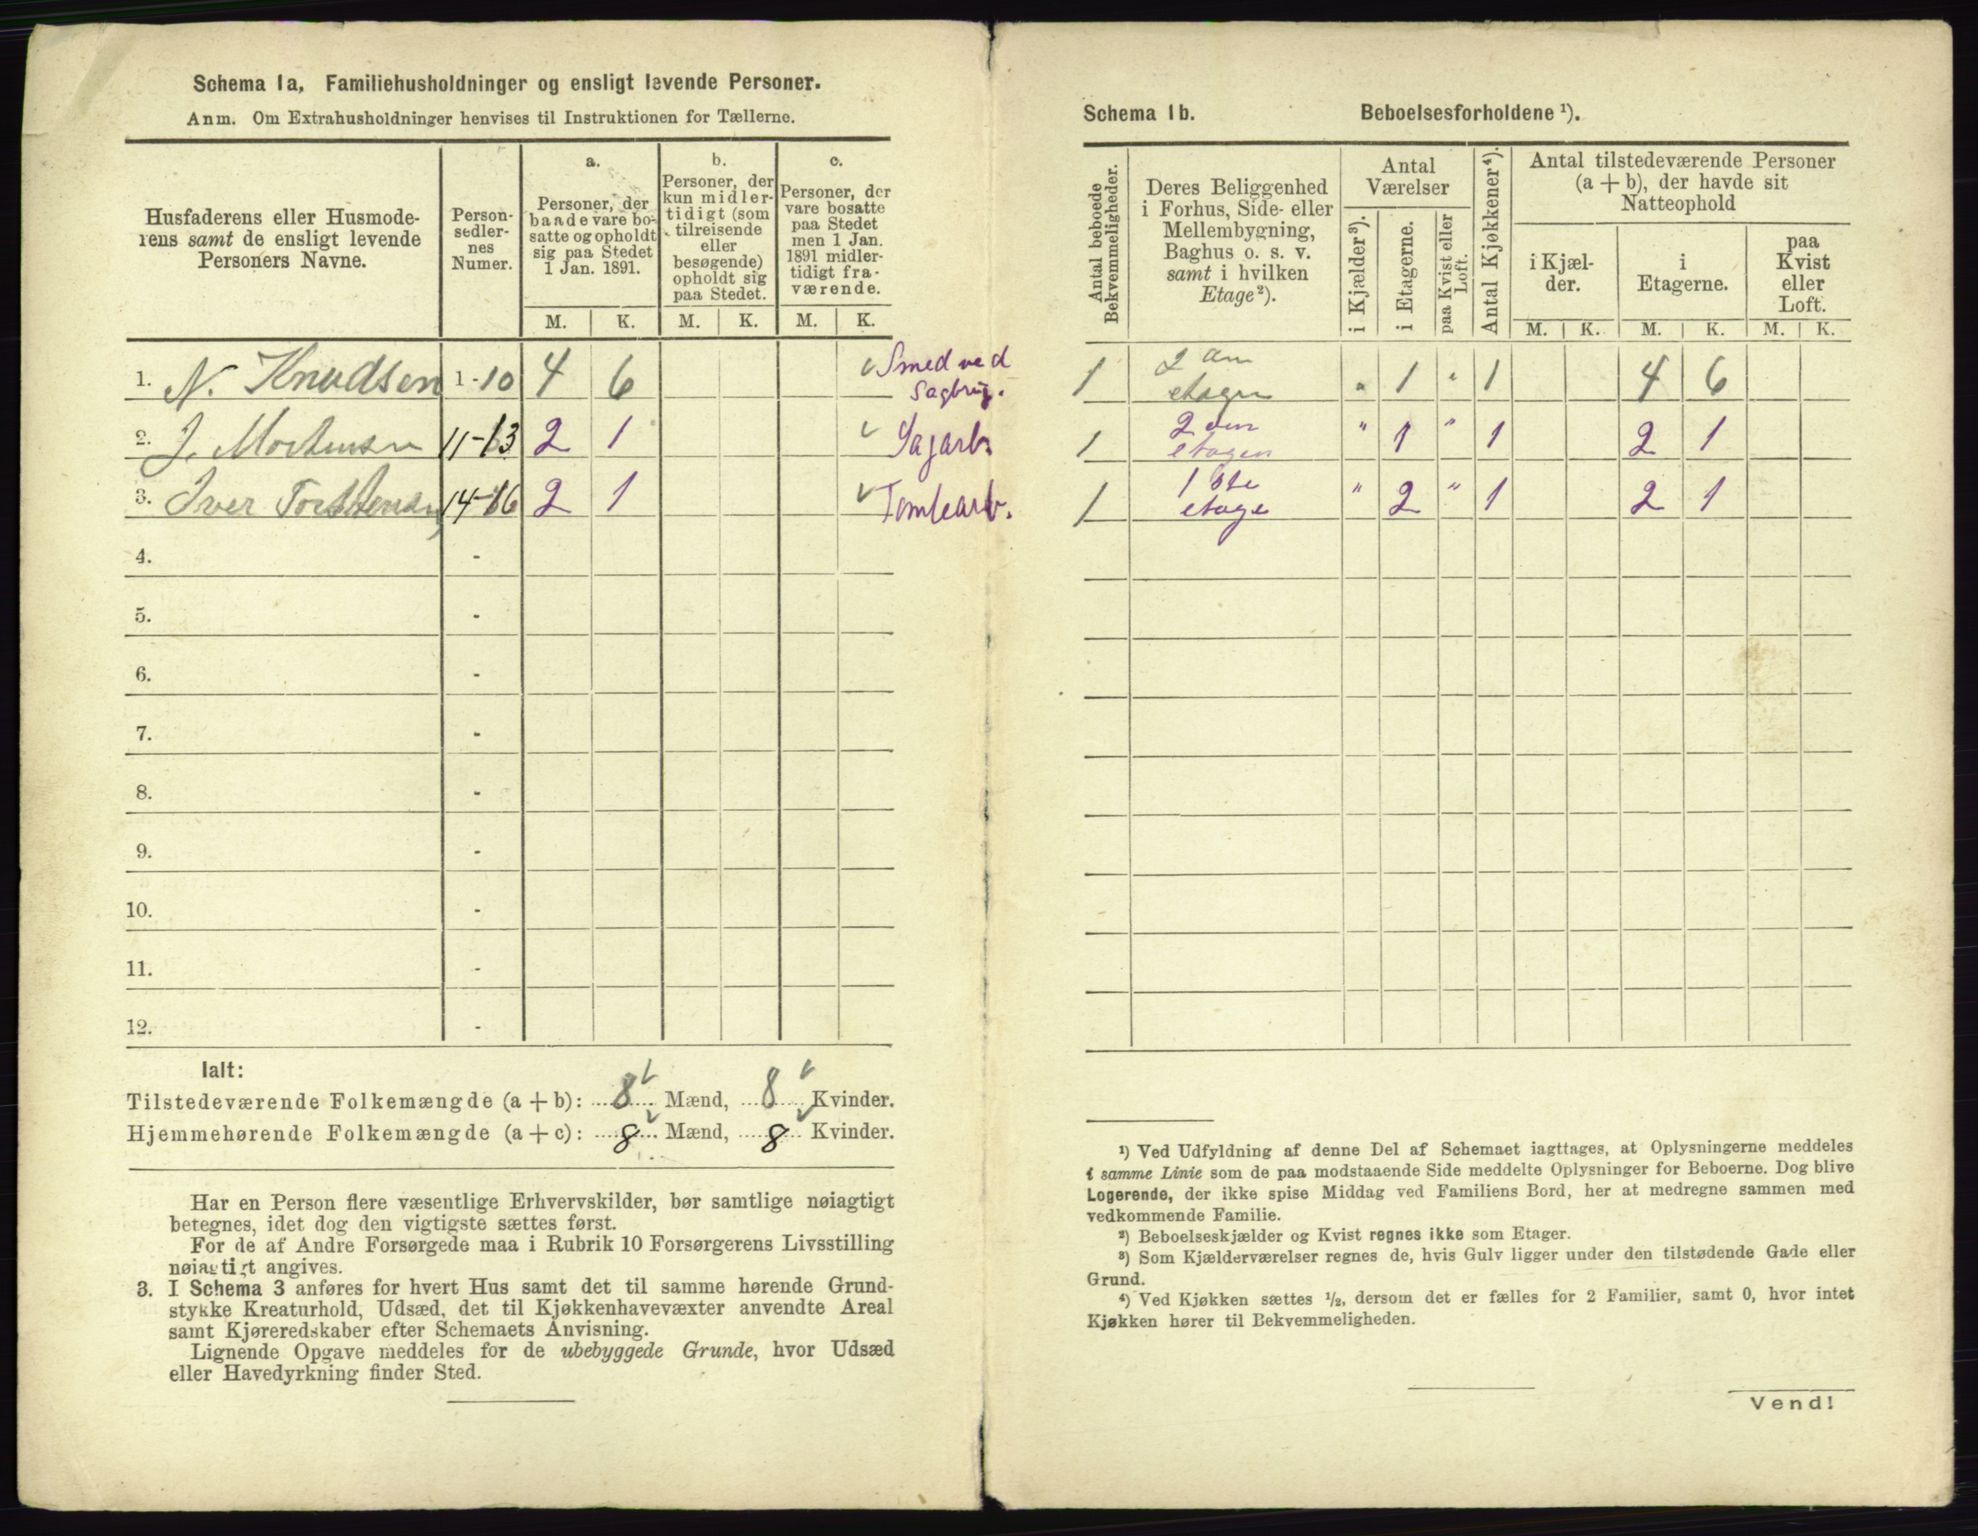 Schema 1a, Familiehusholdninger og ensligt levende Personer.
Anm. Om Extrahusholdninger henvises til Instruktionen for Tællerne.
Husfaderens eller Husmode-
rens samt de ensligt levende
Personers Navne.
Person-
sedler-
nes
Numer.
a.
Personer, der
baade vare bo-
satte og opholdt
sig paa Stedet
1 Jan. 1891.
b.
Personer, der
kun midler-
tidigt (som
tilreisende
eller
besøgende)
opholdt sig
paa Stedet.
c.
Personer, der
vare bosatte
paa Stedet
men 1 Jan.
1891 midler-
tidigt fra-
værende.
M. K. M. K. M. K.
1. N. Knudsen 1-10 4 6 Smed ved
Sagbrug.
2. J. Mortensen 11-13 2 1 Sagarb.
3. Iver Torstensen 14-16 2 1 Tomtearb.
4. -
5. -
6. -
7. -
8. -
9. -
10. -
11. -
12. -
Ialt:
Tilstedeværende Folkemængde (a + b): 8 Mænd, 8 Kvinder.
Hjemmehørende Folkemængde (a + c): 8 Mænd, 8 Kvinder.
Har en Person flere væsentlige Erhvervskilder, bør samtlige nøiagtigt
betegnes, idet dog den vigtigste sættes først.
For de af Andre Forsørgede maa i Rubrik 10 Forsørgerens Livsstilling
nøiagtigt angives.
3. I Schema 3 anføres for hvert Hus samt det til samme hørende Grund-
stykke Kreaturhold, Udsæd, det til Kjøkkenhavevæxter anvendte Areal
samt Kjøreredskaber efter Schemaets Anvisning.
Lignende Opgave meddeles for de ubebyggede Grunde, hvor Udsæd
eller Havedyrkning finder Sted.
Schema 1b. Beboelsesforholdene ¹).
Antal beboede
Bekvemmeligheder.
Deres Beliggenhed
i Forhus, Side- eller
Mellembygning,
Baghus o. s. v.
samt i hvilken
Etage²).
Antal
Værelser
i Kjælder³).
i Etagerne.
paa Kvist eller
Loft.
Antal Kjøkkener⁴).
Antal tilstedeværende Personer
(a + b), der havde sit
Natteophold
i Kjæl-
der.
i
Etagerne.
paa
Kvist
eller
Loft.
M. K. M. K. M. K.
1 2 den
etagen " 1 " 1 4 6
1 2 den
etagen " 1 " 1 2 1
1 1 ste
etage " 2 " 1 2 1
¹) Ved Udfyldning af denne Del af Schemaet iagttages, at Oplysningerne meddeles
i samme Linie som de paa modstaaende Side meddelte Oplysninger for Beboerne. Dog blive
Logerende, der ikke spise Middag ved Familiens Bord, her at medregne sammen med
vedkommende Familie.
²) Beboelseskjælder og Kvist regnes ikke som Etager.
³) Som Kjælderværelser regnes de, hvis Gulv ligger under den tilstødende Gade eller
Grund.
⁴) Ved Kjøkken sættes ½, dersom det er fælles for 2 Familier, samt 0, hvor intet
Kjøkken hører til Bekvemmeligheden.
Vend!